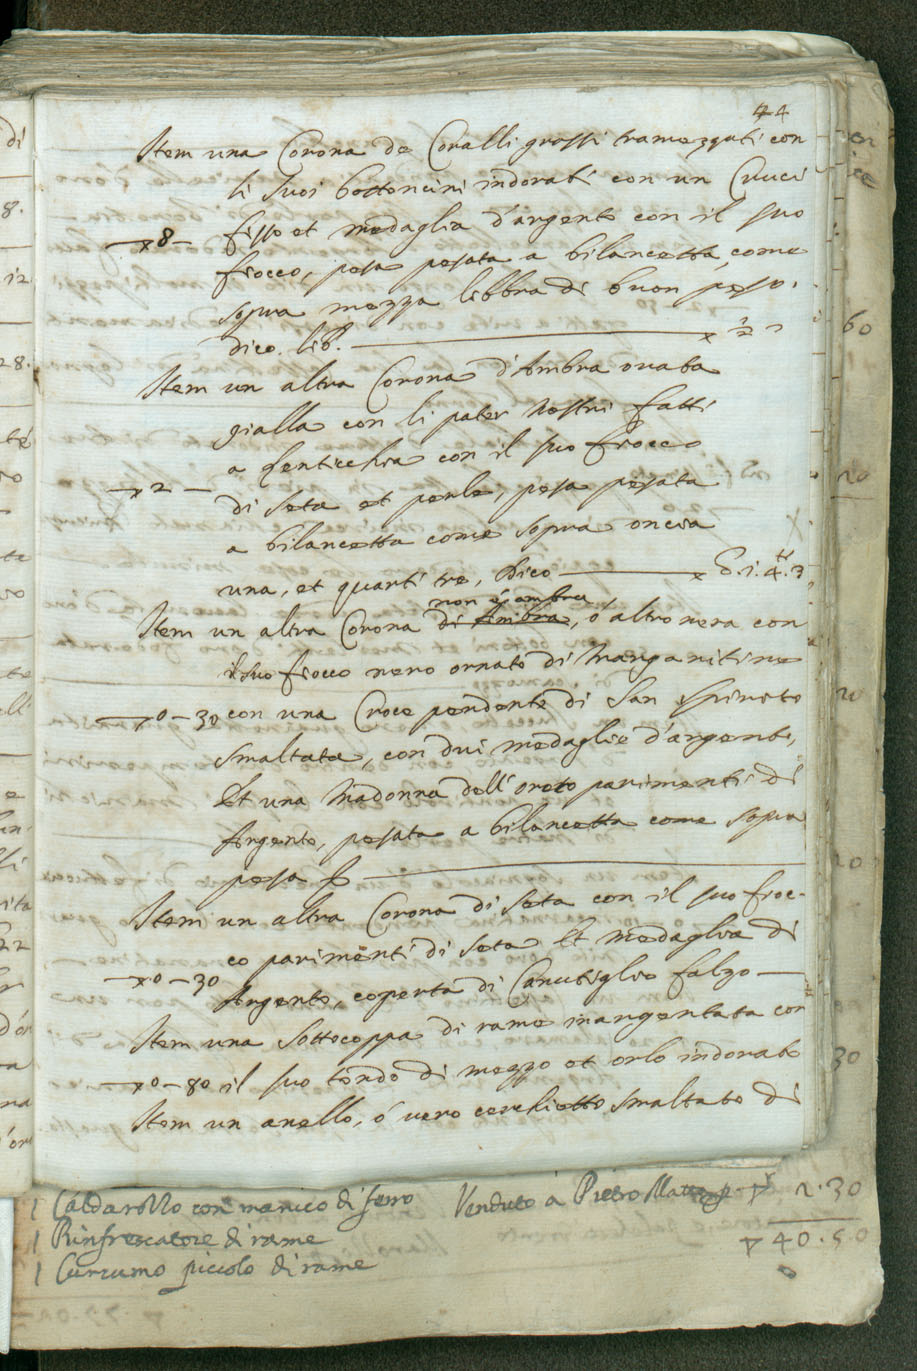 44
Item una Corona de Coralli grossi tramezzati con
li suoi bottoncini indorati con un Cruci
fisso et medaglia d'argento con il suo
8 —
fiocco, pesa pesata a bilancetta, come
sopra mezza libbra di buon peso.
dico. lib.
Item un altra Corona d'Ambra ovata
gialla con li pater nostri fatti
a lenticchia con il suo fiocco
2 —
di seta et perle, pesa pesata
a bilancetta come sopra oncia
una, et quarti tre, dico
non è ambra
Item un altra Corona di Ambra, ó altro nera con
il suo fiocco nero ornato di Margaritine
0 – 30 con una Croce pendente di San Spirito
smaltata, con dui medaglie d'argento,
Et una Madonna dell'oreto parimenti di
Argento, pesata a bilancetta come sopra
pesa
Item un altra Corona di seta con il suo fioc-
co parimenti di seta Et medaglia di
0 – 30 Argento, coperta di Canutiglio falzo —
Item una Sottocoppa di rame inargentata con
0 – 80 il suo tondo di mezzo et orlo indorato
Item un anello, ó vero cerchietto smaltato di
1 Caldarozzo con manico di ferro Venduto à Pietro 2.30
1 Rinfrescatore di rame 40.50
1 Cucumo piccolo di rame
60
20
20
20
30